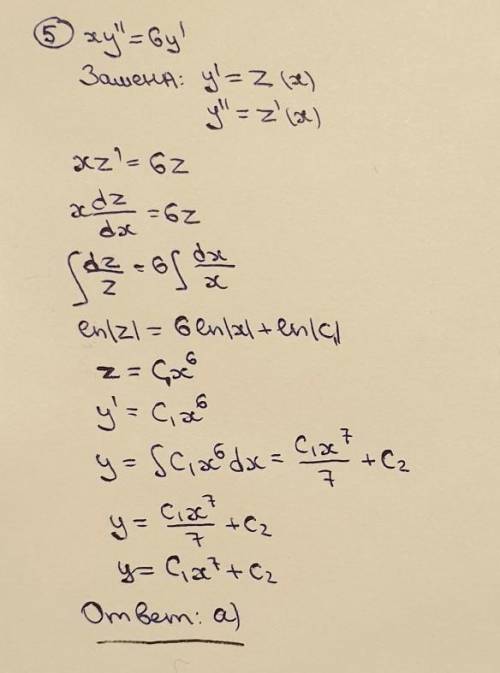 ⑤ xy'' = 6y'
Замена: y' = z(x)
y'' = z'(x)
xz' = 6z
x dz/dx = 6z
∫ dz/z = 6 ∫ dx/x
ln|z| = 6 ln|x| + ln|C₁|
z = C₁x⁶
y' = C₁x⁶
y = ∫ C₁x⁶ dx = C₁x⁷/7 + C₂
y = C₁x⁷/7 + C₂
y = C₁x⁷ + C₂
Ответ: а)